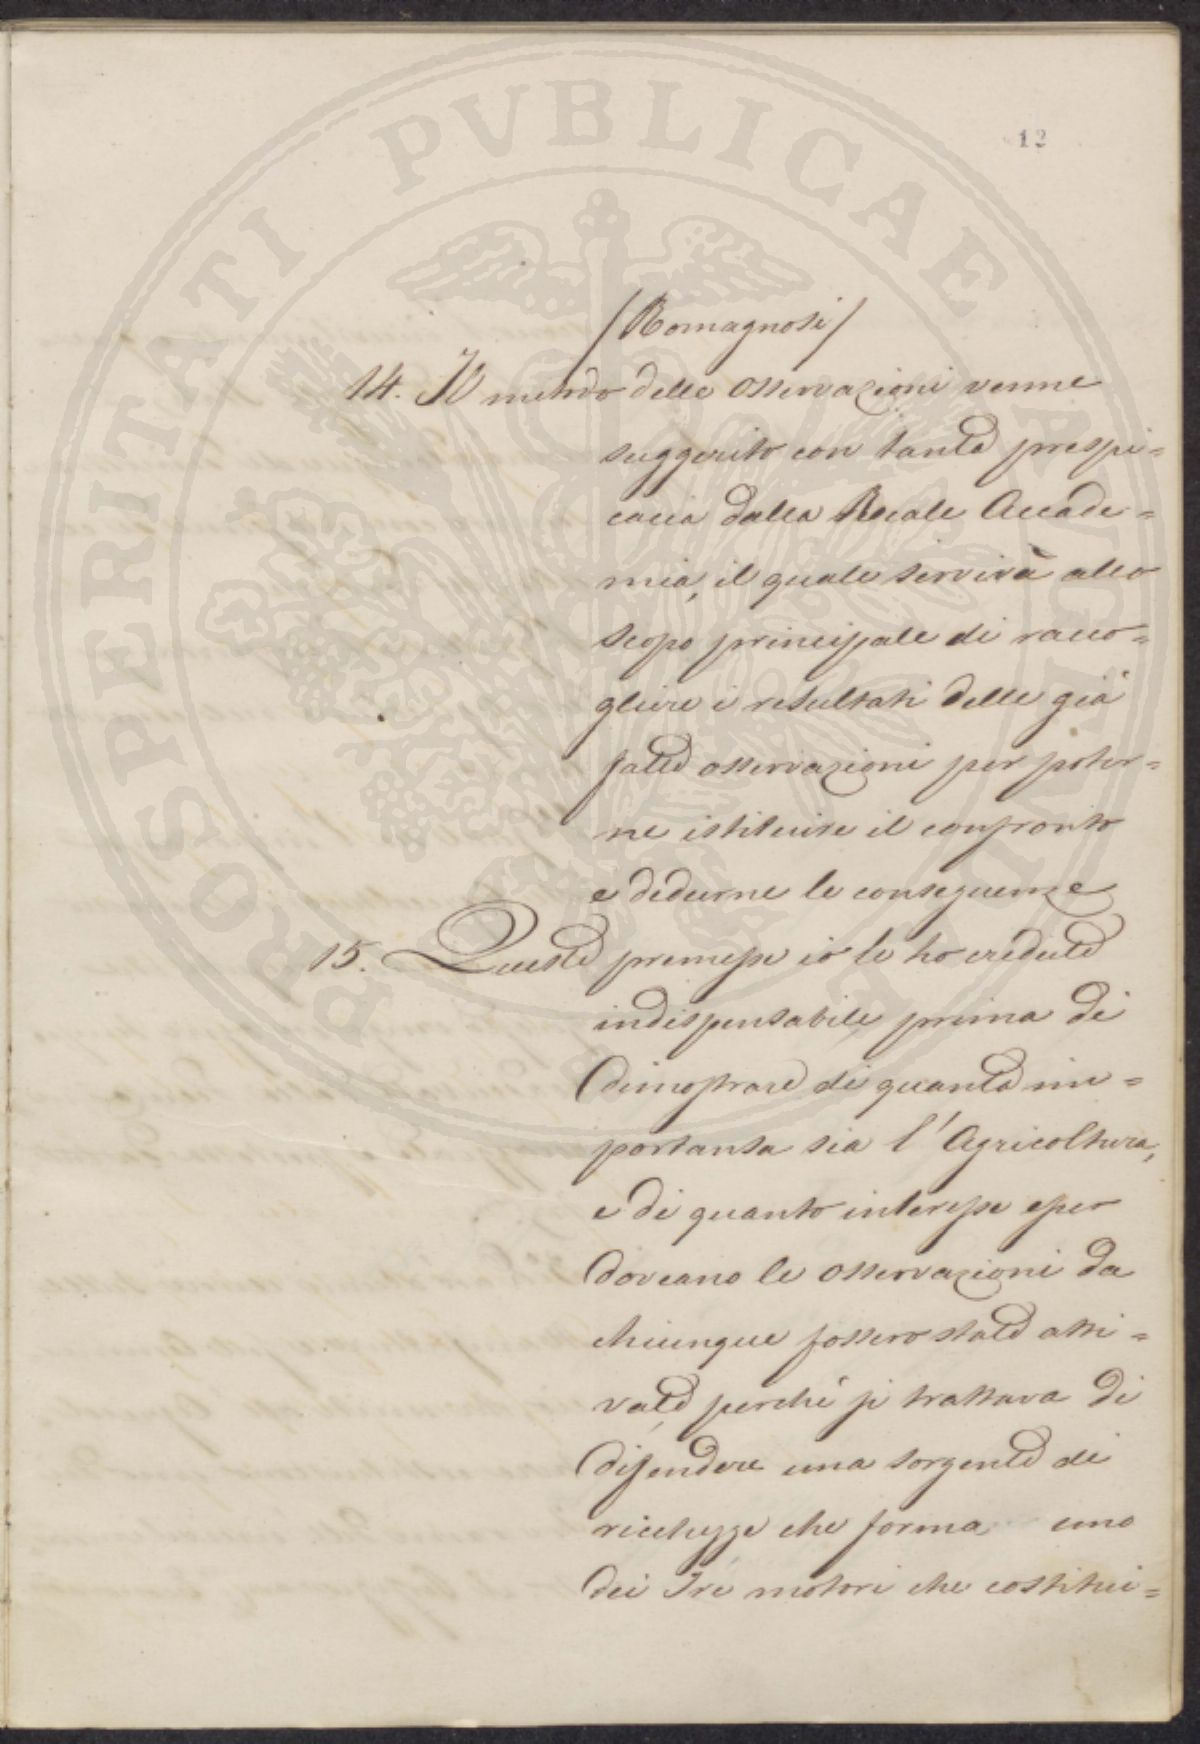 PROSPERITATI PVBLICAE AVGENDAE
12
/Romagnosi/
14. Il metodo delle osservazioni venne
suggerito con tanta prespi=
cacia dalla Reale Accade=
mia, il quale servirà allo
scopo principale di racco=
gliere i resultati delle già
fatte osservazioni per poter=
ne istituire il confronto
e dedurne le conseguenze
15. Queste premesse io le ho credute
indispensabile, prima di
dimostrare di quanta im=
portanta sia l'Agricoltura,
e di quanto interesse esser
doveano le osservazioni da
chiunque fossero state atti=
vate, perché si trattava di
difendere una sorgente di
ricchezze che forma uno
dei Tre motori che costitui=